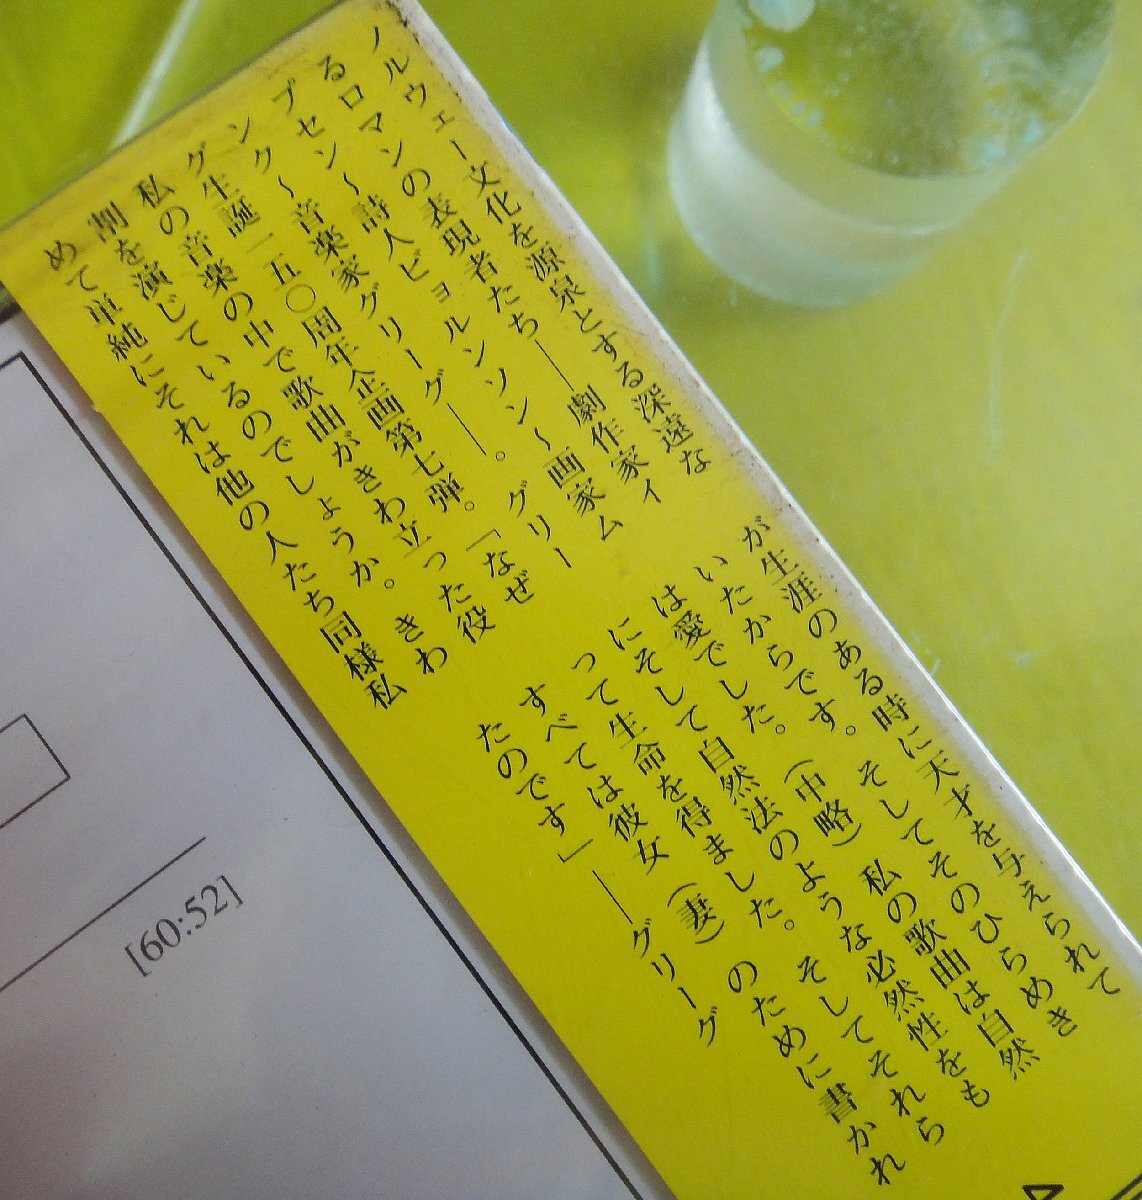 ノルウェー文化を源泉とする深遠な
るロマンの表現者たち——劇作家イ
プセン〜詩人ビョルンソン〜画家ム
ンク〜音楽家グリーグ——。グリー
グ生誕一五〇周年企画第七弾。「なぜ
私の音楽の中で歌曲がきわ立った役
割を演じているのでしょうか。きわ
めて単純にそれは他の人たち同様私
が生涯のある時に天才を与えられて
いたからです。そしてそのひらめき
は愛でした。（中略）私の歌曲は自然
にそして自然法のような必然性をも
って生命を得ました。そしてそれら
すべては彼女（妻）のために書かれ
たのです」——グリーグ
[60:52]